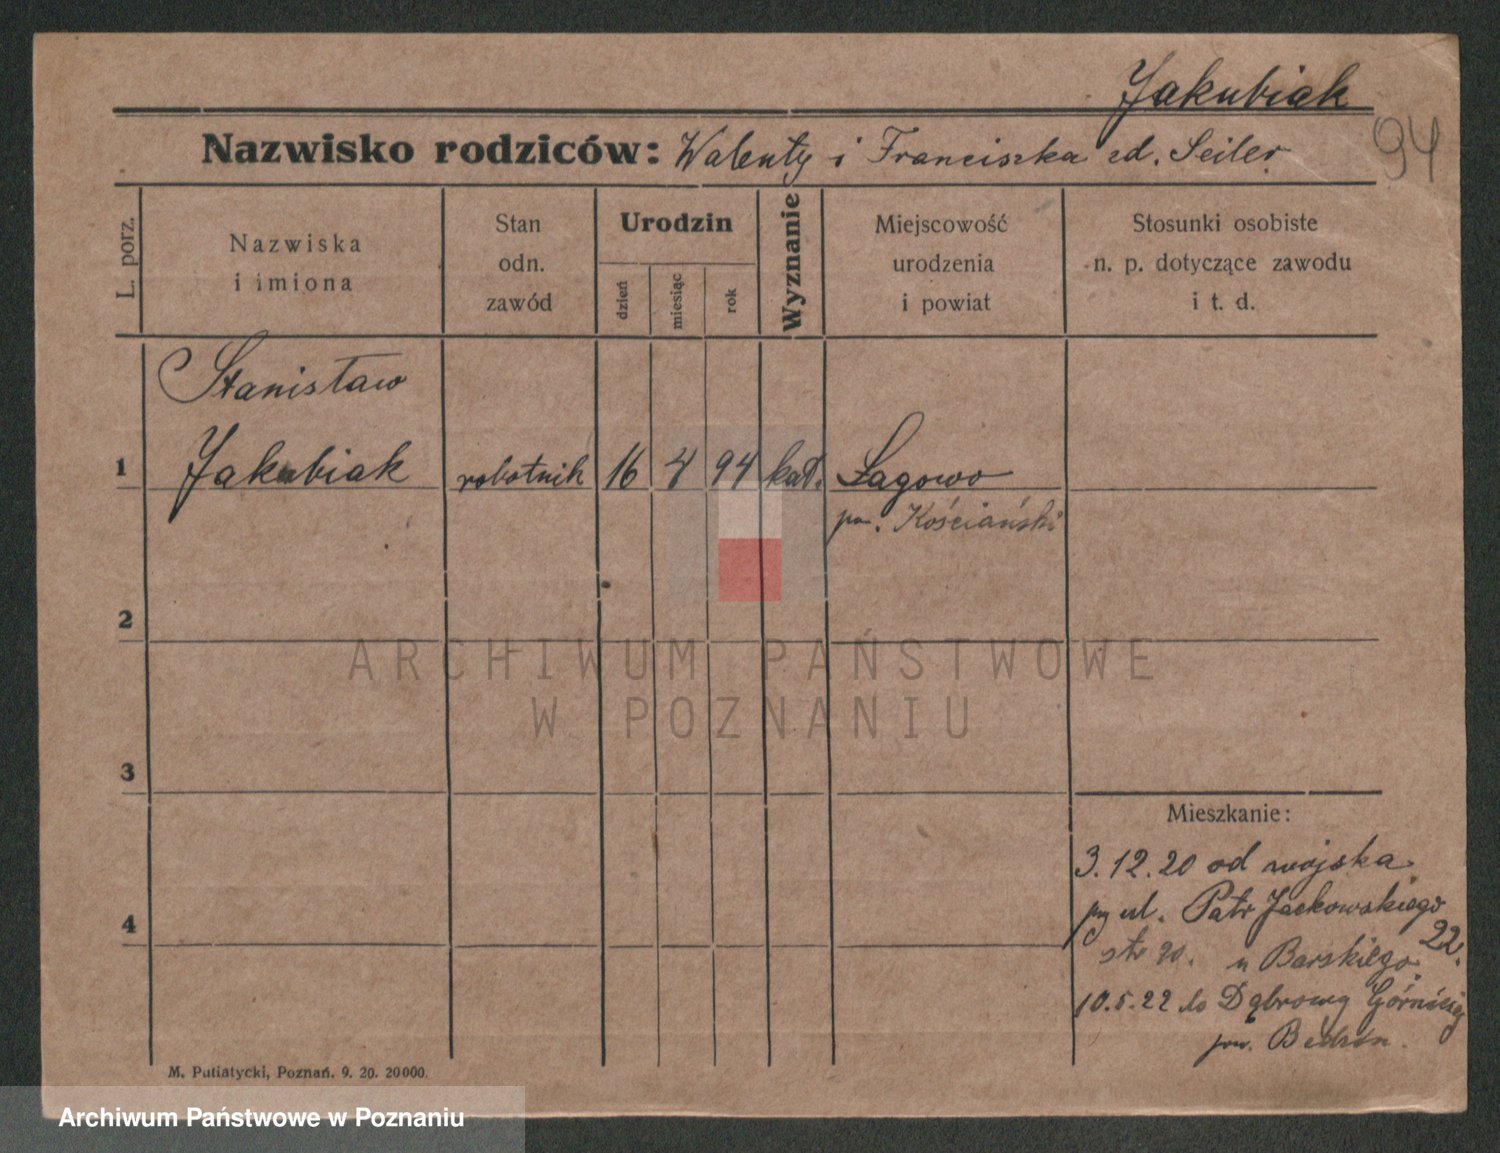 Jakubiak
94
Nazwisko rodziców: Walenty i Franciszka zd. Seiler
L. porz.
Nazwiska
i imiona
Stan
odn.
zawód
Urodzin
dzień
miesiąc
rok
Wyznanie
Miejscowość
urodzenia
i powiat
Stosunki osobiste
n. p. dotyczące zawodu
i t. d.
Stanisław
1 Jakubiak robotnik 16 4 94 kat. Łagowo
pow. Kościański
2
3
4
Mieszkanie:
3.12.20 od wojska
przy ul. Patr Jackowskiego 22.
str 20. u Barskiego.
10.5.22 do Dąbrowy Górniczej
pow. Bedzin.
M. Putiatycki, Poznań. 9. 20. 20000.
ARCHIWUM PAŃSTWOWE
W POZNANIU
Archiwum Państwowe w Poznaniu